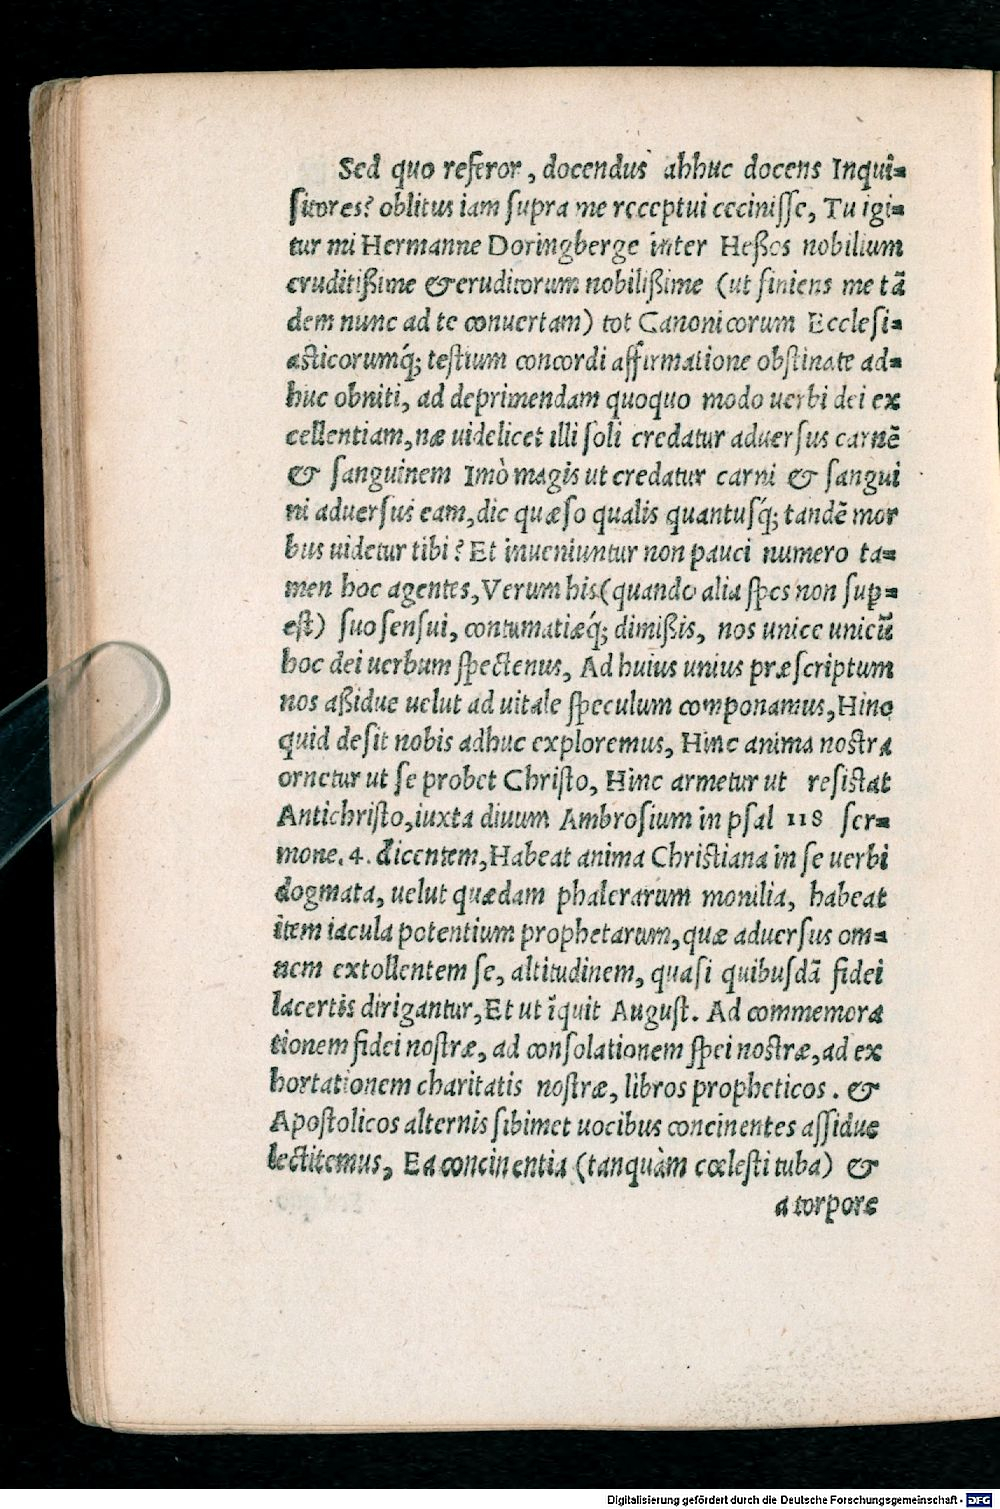 Sed quo referor, docendus ahhuc docens Inqui=
sitores? oblitus iam supra me receptui cecinisse, Tu igi=
tur mi Hermanne Doringberge inter Heßos nobilium
eruditißime & eruditorum nobilißime (ut finiens me tã
dem nunc ad te conuertam) tot Canonicorum Ecclesi=
asticorumq́; testium concordi affirmatione obstinate ad=
huc obniti, ad deprimendam quoquo modo uerbi dei ex
cellentiam, næ uidelicet illi soli credatur aduersus carnẽ
& sanguinem Imò magis ut credatur carni & sangui
ni aduersus eam, dic quæso qualis quantusq́; tandẽ mor
bus uidetur tibi? Et inueniuntur non pauci numero ta=
men hoc agentes, Verum his (quando alia spes non sup=
est) suo sensui, contumatiæq́; dimißis, nos unice unicũ
hoc dei uerbum spectenus, Ad huius unius præscriptum
nos aßidue uelut ad uitale speculum componamus, Hinc
quid desit nobis adhuc exploremus, Hinc anima nostra
ornetur ut se probet Christo, Hinc armetur ut resistat
Antichristo, iuxta diuum Ambrosium in psal 118 ser=
mone. 4. dicentem, Habeat anima Christiana in se uerbi
dogmata, uelut quædam phalerarum monilia, habeat
item iacula potentium prophetarum, quæ aduersus om=
nem extollentem se, altitudinem, quasi quibusdã fidei
lacertis dirigantur, Et ut ĩquit August. Ad commemora
tionem fidei nostræ, ad consolationem spei nostræ, ad ex
hortationem charitatis nostræ, libros propheticos. &
Apostolicos alternis sibimet uocibus concinentes assidue
lectitemus, Ea concinentia (tanquàm cœlesti tuba) &
a torpore
Digitalisierung gefördert durch die Deutsche Forschungsgemeinschaft - DFG